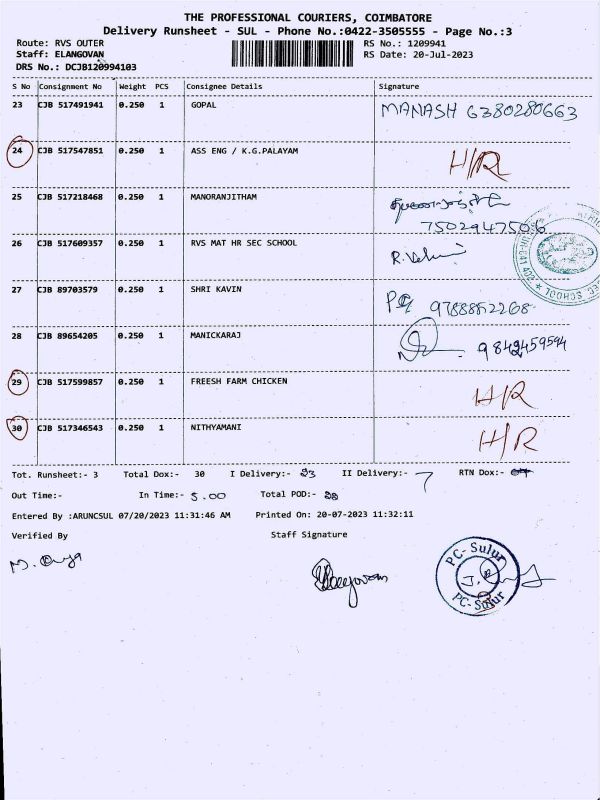 THE PROFESSIONAL COURIERS, COIMBATORE
Delivery Runsheet - SUL - Phone No.:0422-3505555 - Page No.:3
Route: RVS OUTER
RS No.: 1209941
Staff: ELANGOVAN
RS Date: 20-Jul-2023
DRS No.: DCJB120994103
S No Consignment No Weight PCS Consignee Details Signature
23 CJB 517491941 0.250 1 GOPAL MANASH 6380280663
24 CJB 517547851 0.250 1 ASS ENG / K.G.PALAYAM H/R
25 CJB 517218468 0.250 1 MANORANJITHAM
7502947506
26 CJB 517609357 0.250 1 RVS MAT HR SEC SCHOOL
27 CJB 89703579 0.250 1 SHRI KAVIN 9788852268
28 CJB 89654205 0.250 1 MANICKARAJ 9842459594
29 CJB 517599857 0.250 1 FREESH FARM CHICKEN H/R
30 CJB 517346543 0.250 1 NITHYAMANI H/R
Tot. Runsheet:- 3 Total Dox:- 30 I Delivery:- 23 II Delivery:- 7 RTN Dox:-
Out Time:- In Time:- 5.00 Total POD:-
Entered By :ARUNCSUL 07/20/2023 11:31:46 AM Printed On: 20-07-2023 11:32:11
Verified By Staff Signature
PC- Sulur
PC- Sulur